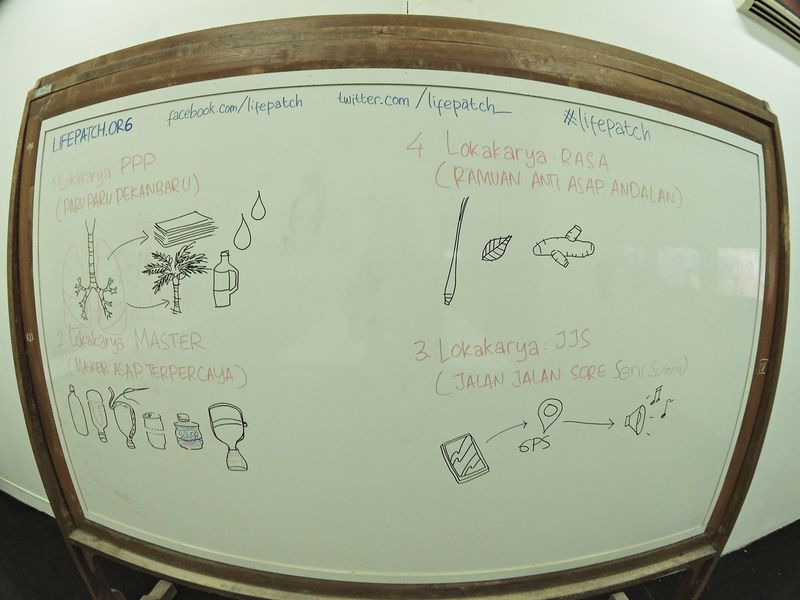 LIFEPATCH.ORG
facebook.com/lifepatch
twitter.com/lifepatch_
#lifepatch
1 Lokakarya PPP
(PARU PARU PEKANBARU)
2. Lokakarya MASTER
(MASKER ASAP TERPERCAYA)
4 Lokakarya: RASA
(RAMUAN ANTI ASAP ANDALAN)
3. Lokakarya: JJS
(JALAN JALAN SORE Seni Suara)
GPS